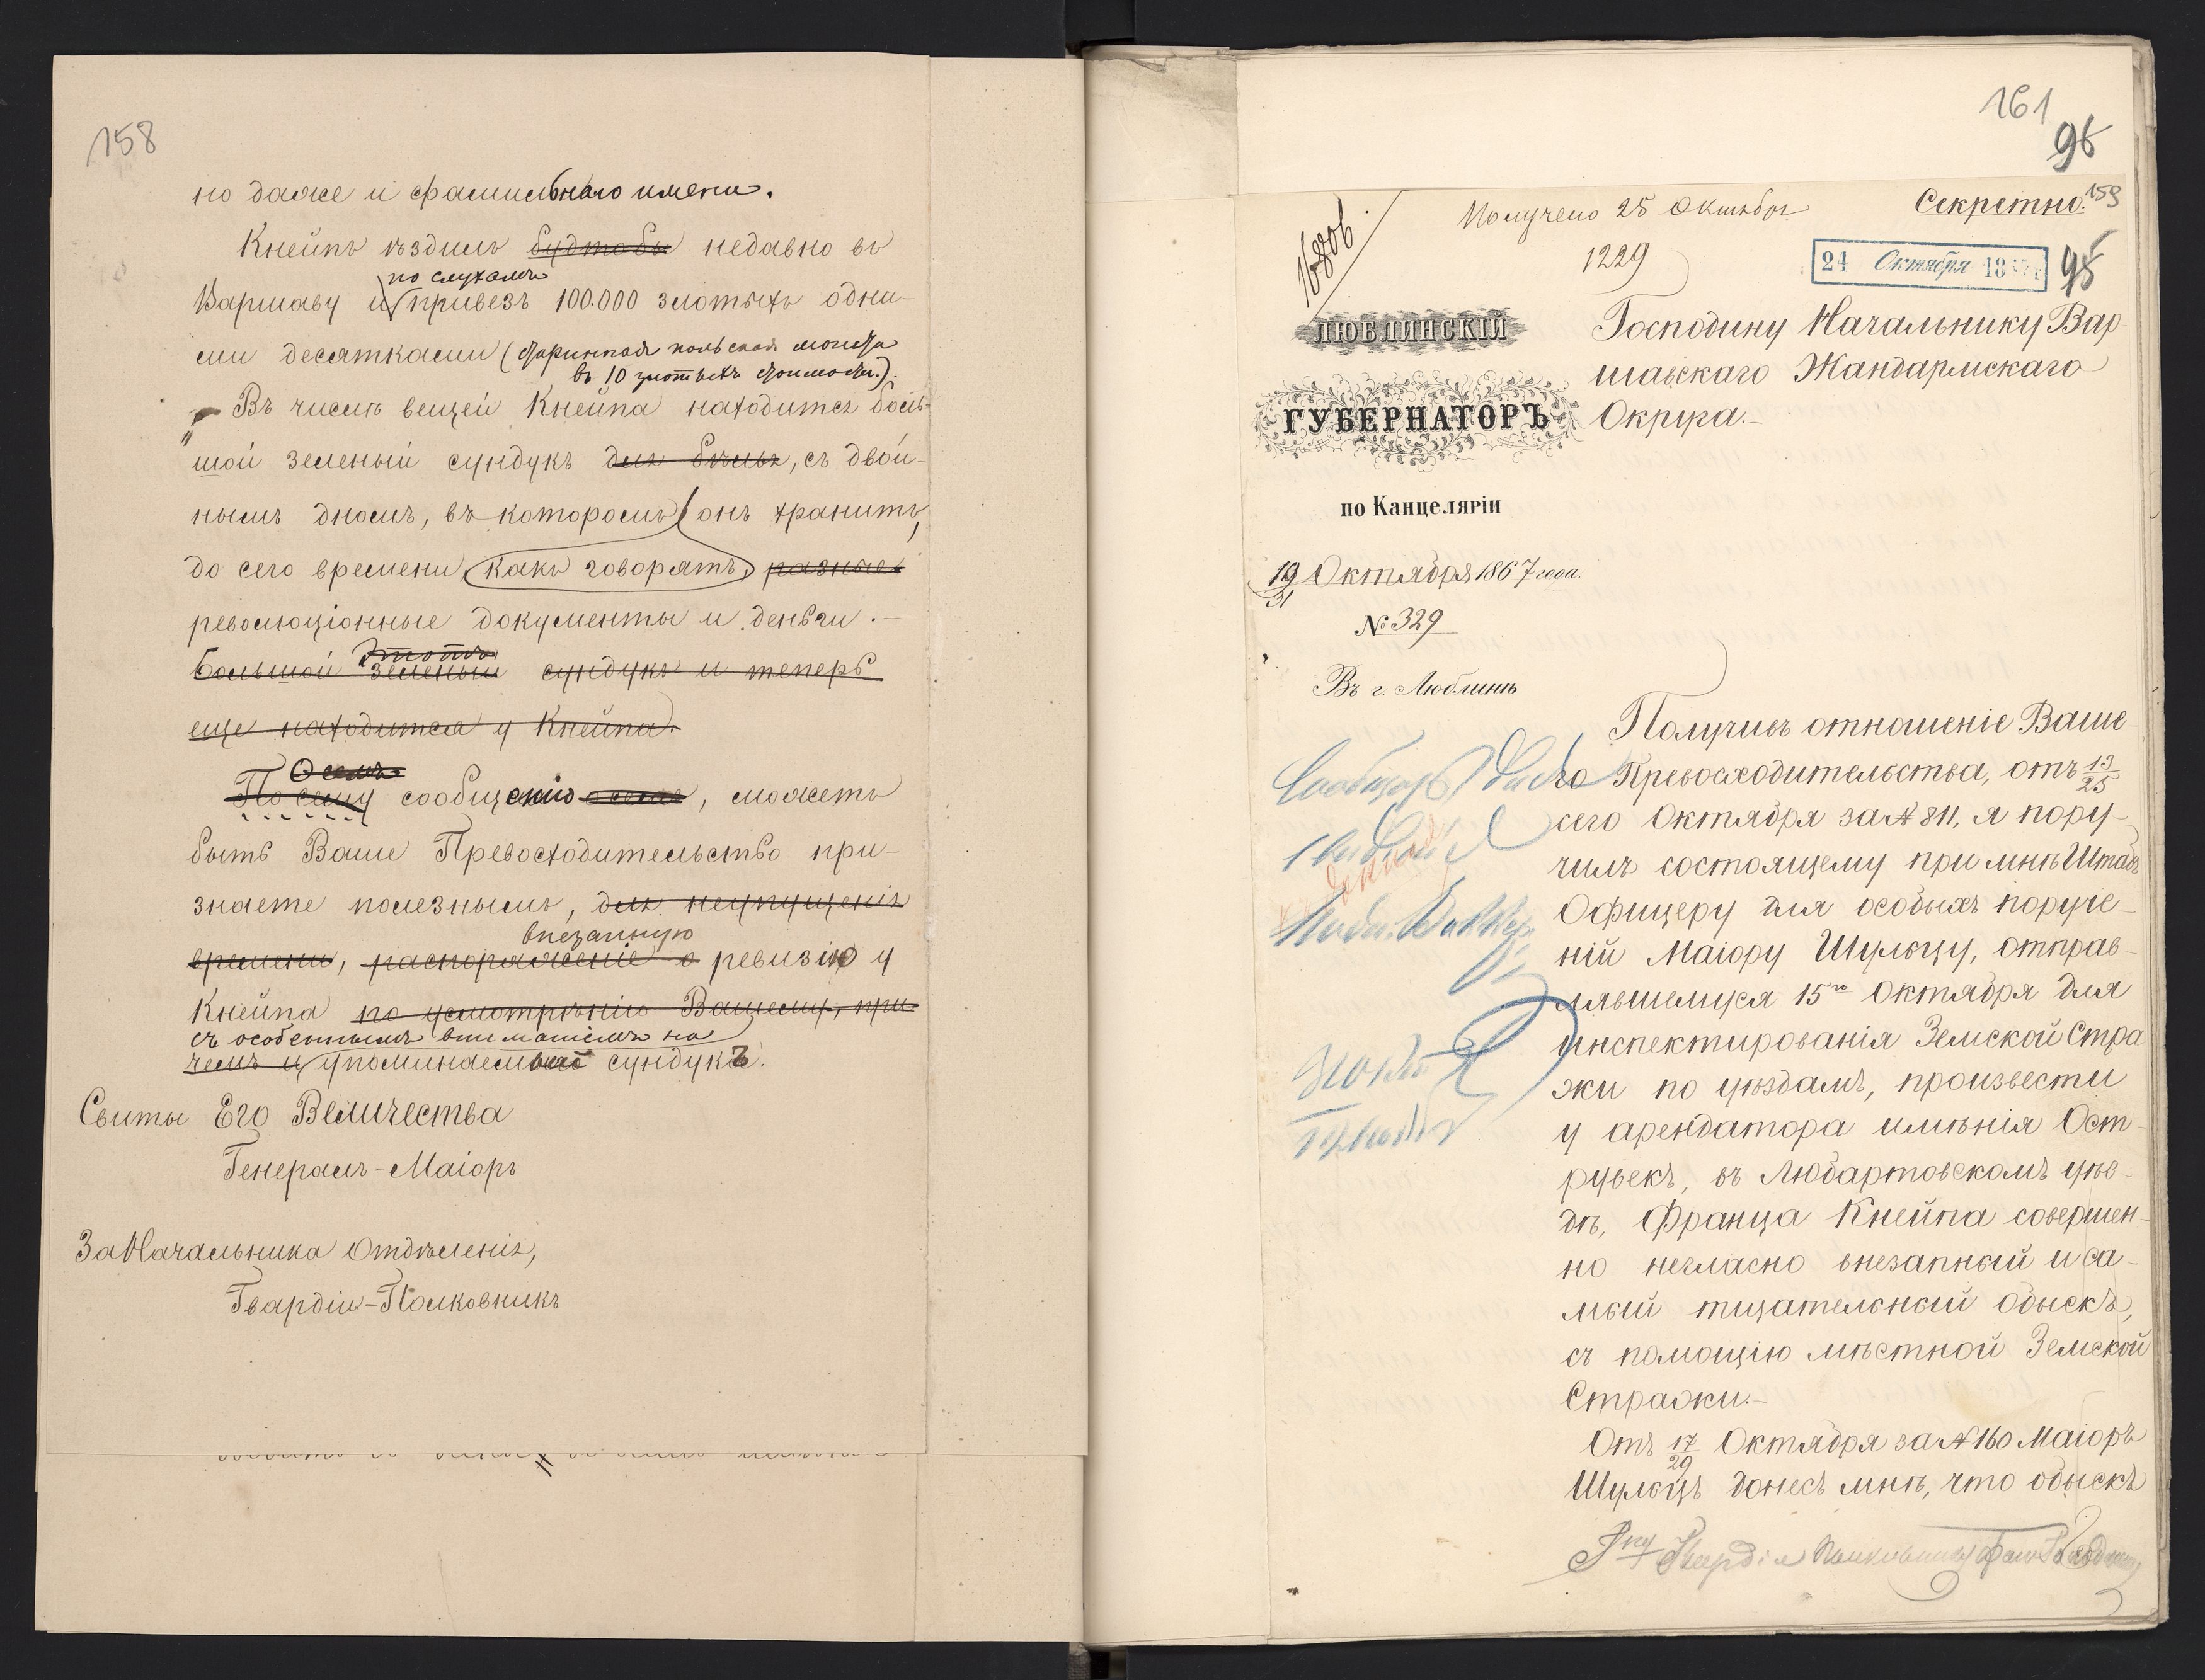 158
но даже и фамильнаго имени.
Кнейпъ ѣздилъ будтобы недавно въ
по слухамъ
Варшаву и привезъ 100.000 злотыхъ одни-
ми десятками (старинная польская монета
въ 10 злотыхъ стоимости.).
Въ числѣ вещей Кнейпа находится боль-
шой зеленый сундукъ для бѣлья, съ двой-
нымъ дномъ, въ которомъ онъ хранитъ,
до сего времени, какъ говорятъ, разные
революціонные документы и деньги.-
Этотъ
большой зеленый сундукъ и теперь
еще находится у Кнейпа.
О семъ
По сему сообщенію, можетъ
быть Ваше Превосходительство при-
знаете полезнымъ, для неупущенія
внезапную
времени, распоряженіе о ревизію у
Кнейпа по усмотрѣнію Вашему, при
съ особеннымъ вниманіемъ на
чемъ и упоминаемый сундукъ.
Свиты Его Величества
Генералъ-Маіоръ
За Начальника Отдѣленія,
Гвардіи-Полковникъ
161
96
Получено 25 Октября
Секретно.
159
1229
24 Октября 186
95
ЛЮБЛИНСКІЙ
ГУБЕРНАТОРЪ
по Канцеляріи
19/31 Октября 1867 года.
№ 329
Въ г. Люблинѣ
Господину Начальнику Вар
шавскаго Жандармскаго
Округа.-
Получивъ отношеніе Ваше-
го Превосходительства, отъ 13/25
сего Октября за № 811, я пору-
чилъ состоящему при мнѣ Штабъ
Офицеру для особыхъ поруче-
ній Маіору Шульцу, отправ-
лявшемуся 15го Октября для
инспектированія Земской Стра
жи по уѣздамъ, произвести
у арендатора имѣнія Ост-
рувекъ, въ Любартовскомъ уѣз-
дѣ, Франца Кнейпа совершен-
но негласно внезапный и са-
мый тщательный обыскъ,
съ помощію мѣстной Земской
Стражи.-
Отъ 17/29 Октября за № 160 Маіоръ
Шульцъ донесъ мнѣ, что обыскъ